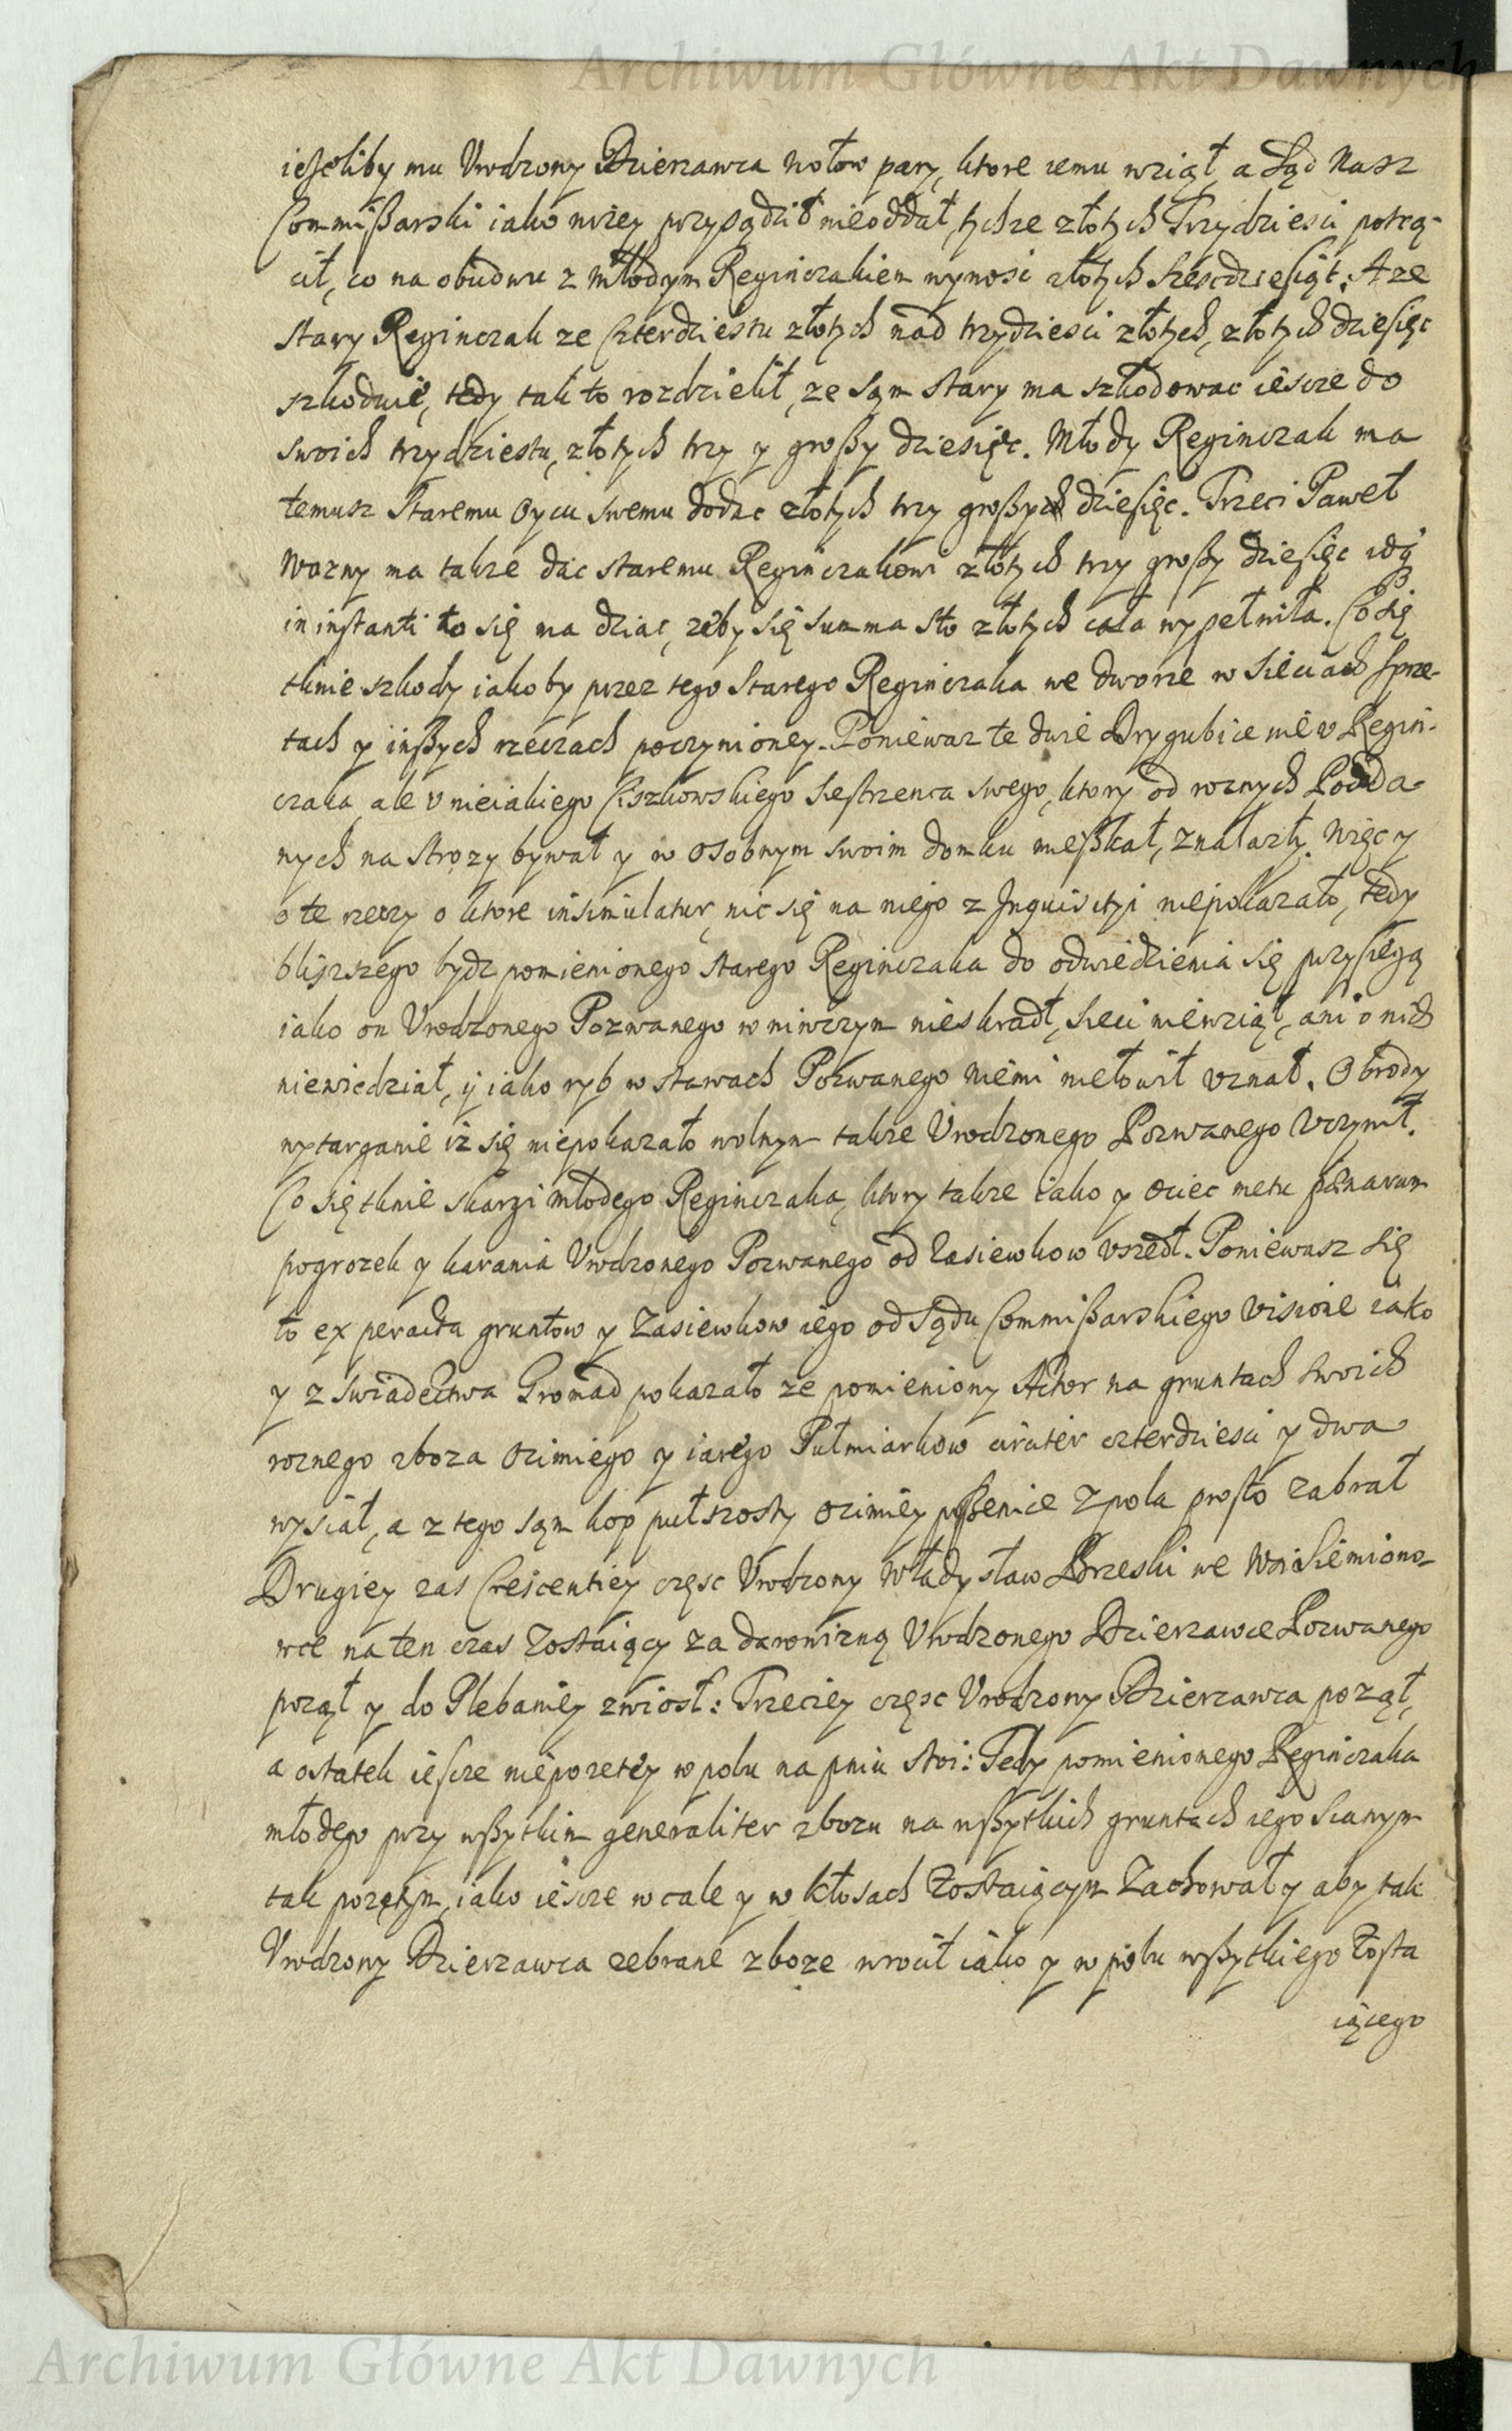 Archiwum Główne Akt Dawnych
ieżeliby mu Vrodzony Dzierzawca Wołow pary, ktore iemu wziął, a Sąd Nasz
Commißarski iako niżey przysądził nieoddał, tychze złotych Trzydziesci potrą-
cił, co na obudwu z Młodym Reginczakiem wynosi złotych szescdziesiąt. A ze
stary Reginczak ze Czterdziestu złotych nad trzydziesci złotych, złotych dziesięc
szkoduie, tedy tak to rozdzielił, ze sąm stary ma szkodowac iescze do
swoich trzydziestu, złotych trzy y großy dziesięc. Młody Reginczak ma
temusz staremu Oycu swemu dodac złotych trzy großych dziesięc. Trzeci Paweł
Wozny ma takze dac staremu Reginczakowi złotych trzy großy dziesięc idą
in instanti to się ma dziac, zeby się summa sto złotych cała wypełniła. Co się
tknie szkody iakoby przez tego starego Reginczaka we dworze w Sieciach sprzę-
tach y inßych rzeczach poczynioney. Poniewaz te dwie Drygubice nie v Regin-
czaka, ale v nieiakiego Ciszkowskiego siestrzenca swego, ktory od roznych Podda-
nych na strozy bywał y w osobnym swoim domku mießkał, znalazły. Więc y
o te rzeczy o ktore insimulatur, nic się na niego z Jnquisityi niepokazało, tedy
bliższego bydz pomienionego starego Reginczaka do odwiedzienia się przysięgą
iako on Vrodzonego Pozwanego w niwczym nieskradł, sieci niewziął, ani o nich
niewiedział, y iako ryb w stawach Pozwanego niemi niełowił vznał. O brody
wytarganie iz się niepokazało wolnym takze Vrodzonego Pozwanego vczynił.
Co się tknie skargi młodego Reginczaka, ktory takze iako y ociec metu pænarum
pogrozek y karania Vrodzonego Pozwanego od Zasiewkow vszedł. Poniewasz się
to ex peracta gruntow y Zasiewkow iego od Sądu Commißarskiego Visione iako
y z swiadectwa Gromad pokazało ze pomieniony Aktor na gruntach swoich
roznego zboza Ozimiego y iarego Pułmiarkow circiter czterdziesci y dwa
wysiał, a z tego sąm kop pułszosty ozimiey pßenice z pola prosto zabrał
Drugiey zas Crescentiey częsc Vrodzony Władysław Brzeski we Wsi Siemiono-
wce na ten czas Zostaiący za darowizną Vrodzonego Dzierzawce Pozwanego
pożął y do Plebaniey zwiosł: Trzeciey częsc Vrodzony Dzierzawca pożął,
a ostatek iescze niepozetey w polu na pniu stoi: Tedy pomienionego Reginczaka
młodego przy wßytkim generaliter zbozu na wßytkich gruntach iego sianym
tak pozętym, iako iescze w cale y w kłosach Zostaiącym Zachował y aby tak
Vrodzony Dzierzawca zebrane zboze wrocił iako y w polu wßytkiego Zosta
iącego
Archiwum Główne Akt Dawnych